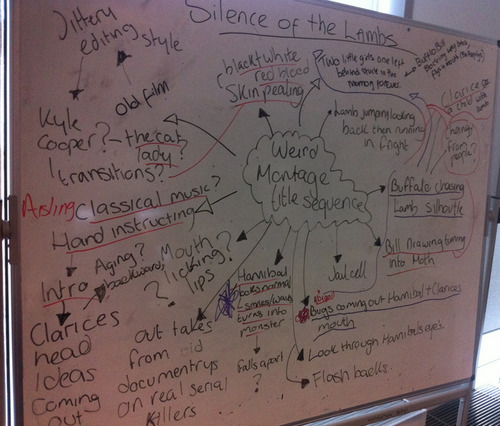 Silence of the Lambs
Jittery
editing style
Old film
Kyle
Cooper? - the cat
lady?
transitions?
black + white
red blood
Skin pealing
Two little girls one left
behind stuck in the
memory forever
Buffalo Bill
Clarice as
a child with
lamb
hangs
from
people?
Lamb jumping looking
back then running
in fright
Weird
Montage
title sequence
Aisling Classical music?
Hand instructing
Intro
Aging?
backwards
?
Mouth
licking?
lips
Clarices
head
Ideas
Coming
out
out takes
from old
documentrys
on real serial
killers
Hannibal
looks normal
smiles/waves
turns into
monster
Falls apart
?
Jail cell
Buffalo chasing
Lamb silhoutte
Bill Drawing turning
into Moth
Bugs coming out Hannibal + Clarices
mouth
Look through Hannibals eyes
Flash backs